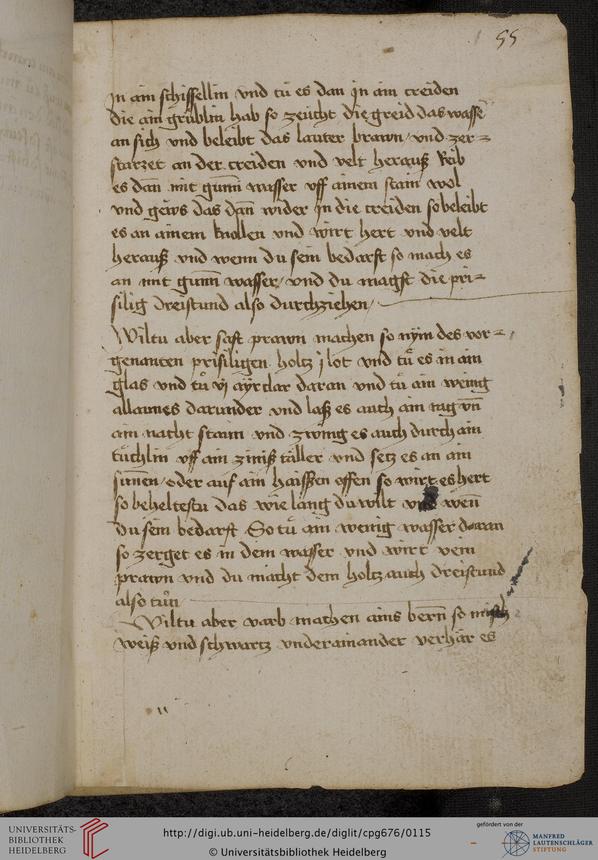 55
jn ain schissellin vnd tů es dan jn ain creiden
die ain grüblin hab so zeücht die greid das wasser
an sich vnd beleibt das lauter brawn / vnd zer=
starzet an der creiden vnd velt herauß Reib
es dan̄ mit gum̄i wasser vff ainem stain wol
vnd geüs das dan̄ wider jn die creiden so beleibt
es an ainem knollen vnd wirt hert vnd velt
herauß vnd wenn du sein bedarfst so mach es
an mit gum̄i wasser / vnd du magst die pri=
silig dreistund also durchziehen /
Wiltu aber saft prawn machen so nym des vor=
genanten prisiligen holtz j lot vnd tů es in ain
glas vnd tů vj ayrclar daran vnd tů ain wenig
allaunes darunder vnd laß es auch ain tag vn̄
ain nacht staun vnd zwing es auch durch ain
tůchlin vff ain ziniß täller vnd setz es an ain
sunnen / oder auf ain haissen offen so wirt es hert
so beheltestu das wie lang du wilt vnd wen̄
du sein bedarft So tů ain wenig wasser daran
so zerget es in dem wasser vnd wirt vein
prawn vnd du macht dem holtz auch dreistund
also tůn
Wiltu aber varb machen ains bern̄ so misch
weiß vnd schwartz vnder ainander verhär es
UNIVERSITÄTS-
BIBLIOTHEK
HEIDELBERG
http://digi.ub.uni-heidelberg.de/diglit/cpg676/0115
© Universitätsbibliothek Heidelberg
gefördert von der
MANFRED
LAUTENSCHLÄGER
STIFTUNG